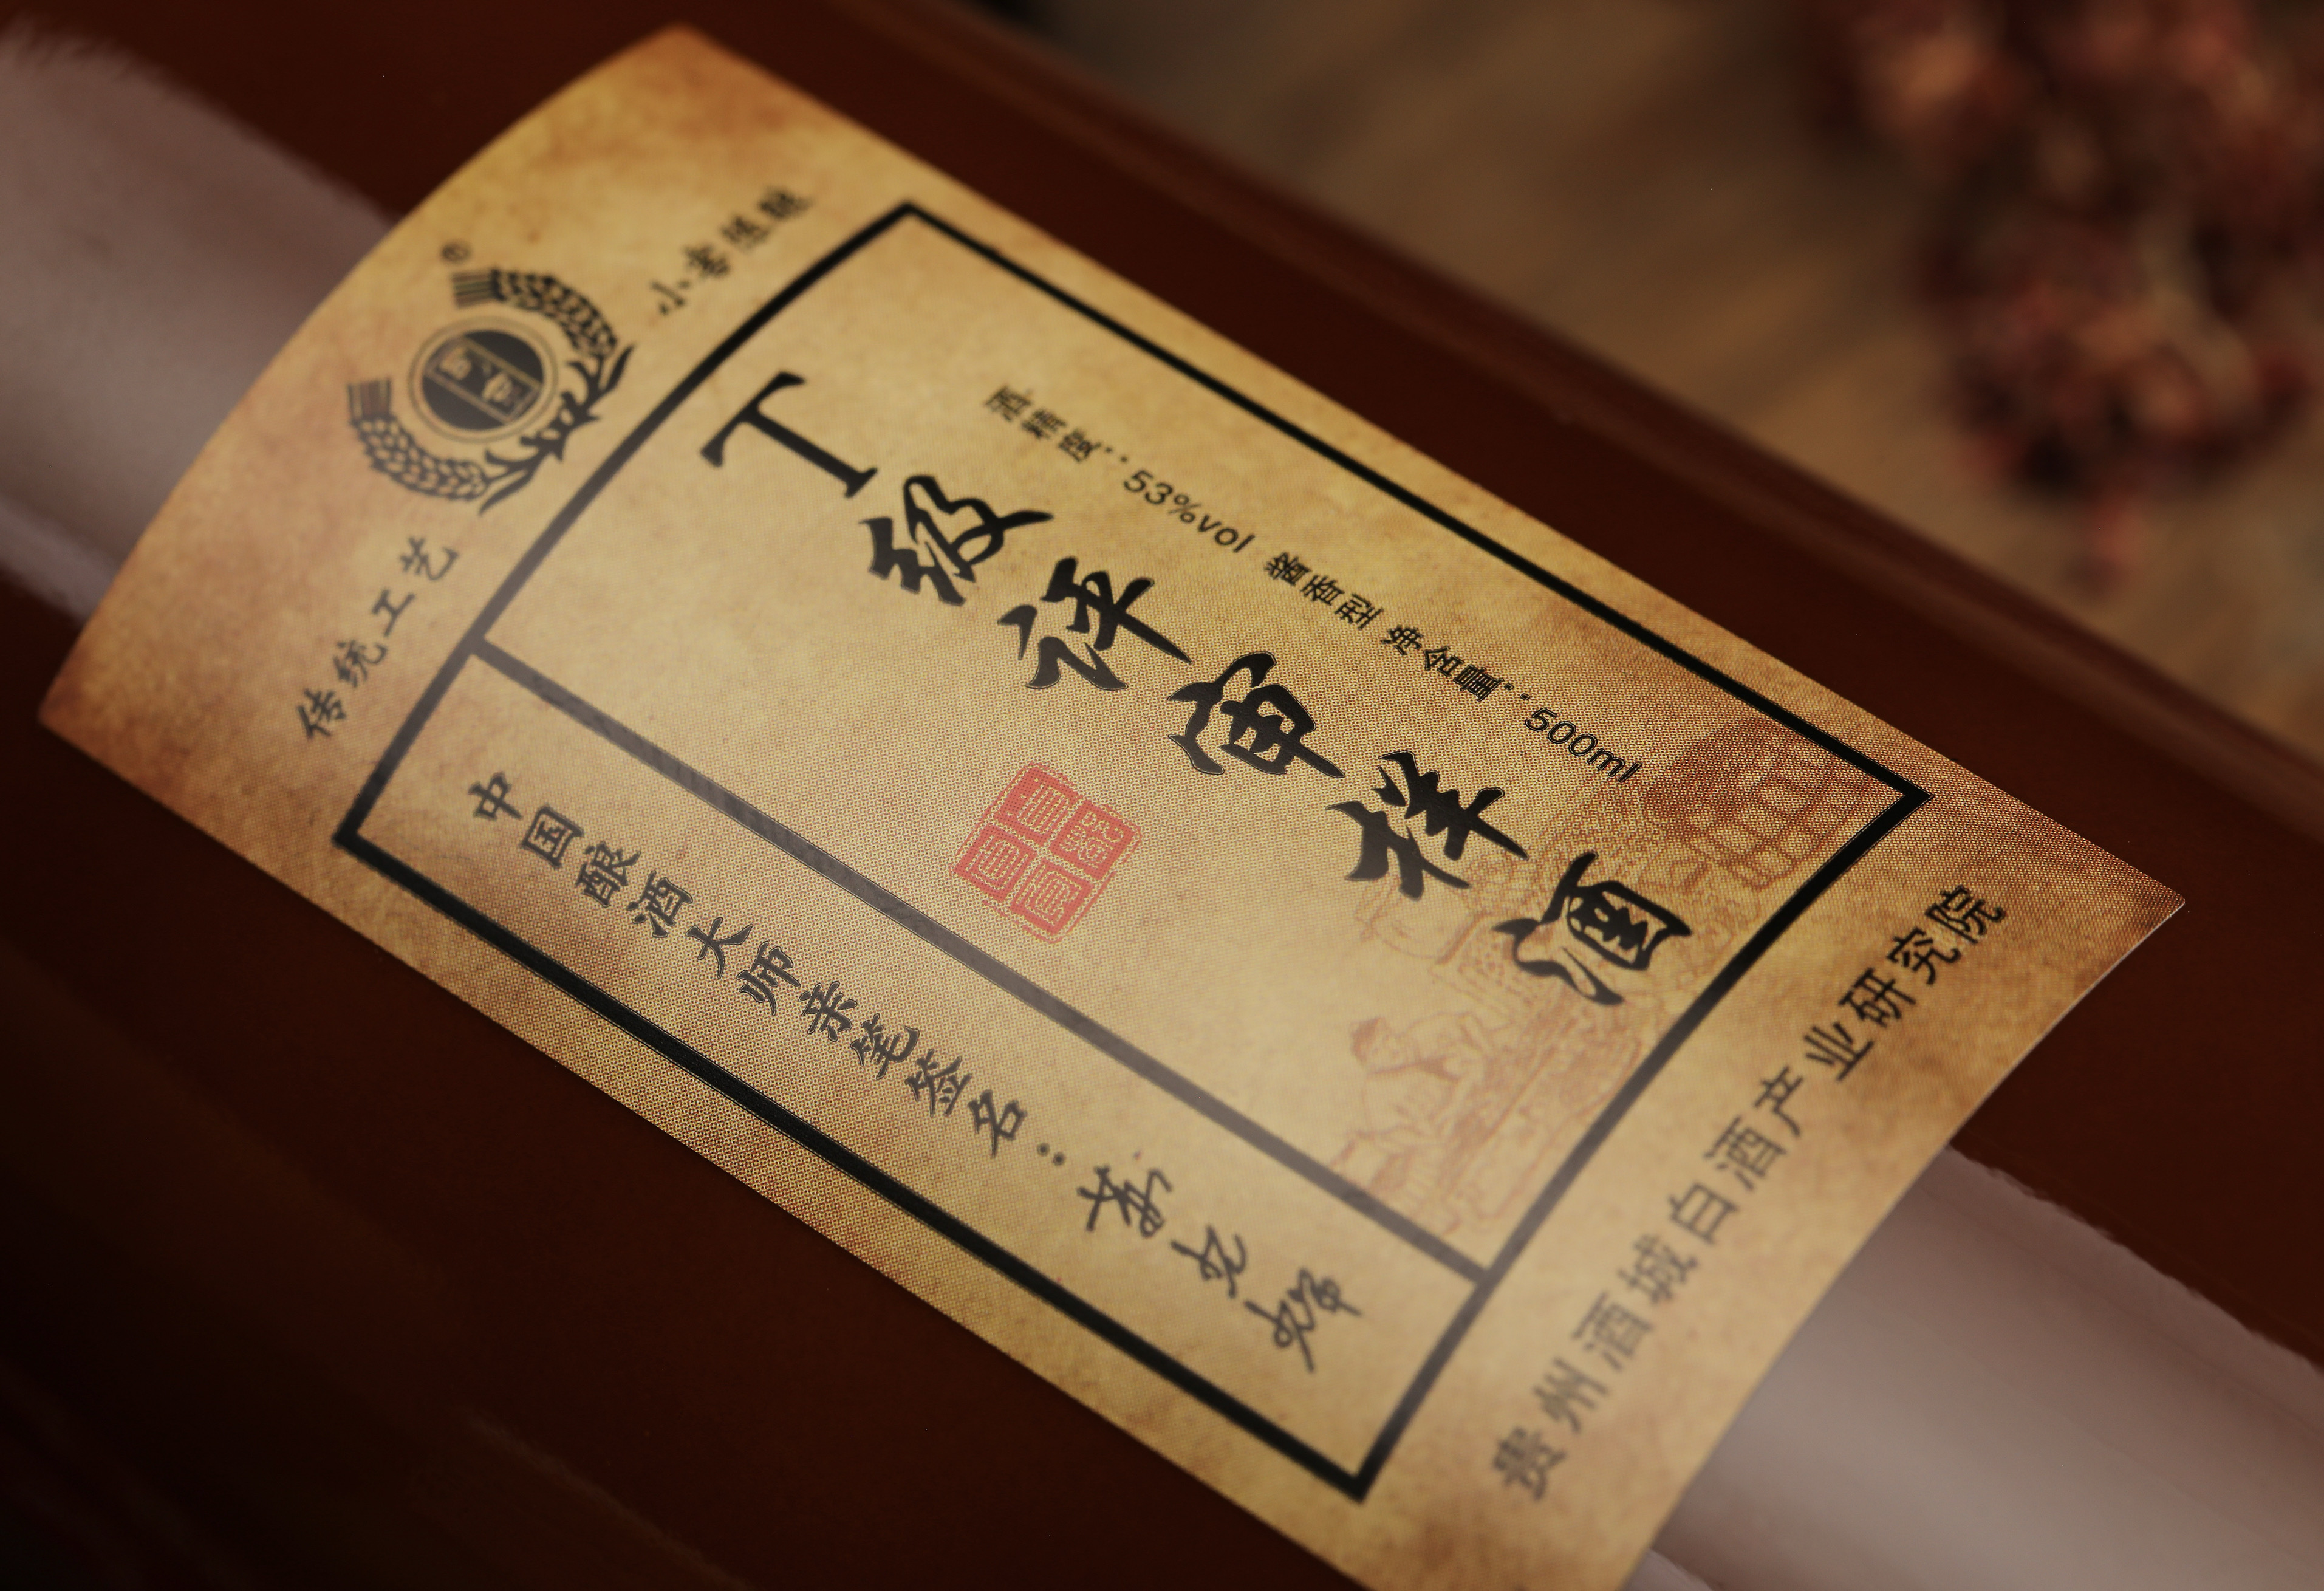 传统工艺
小窖陈酿
酒精度：53%vol 酱香型 净含量：500ml
T级评审样酒
中国酿酒大师亲笔签名：
贵州酒城白酒产业研究院